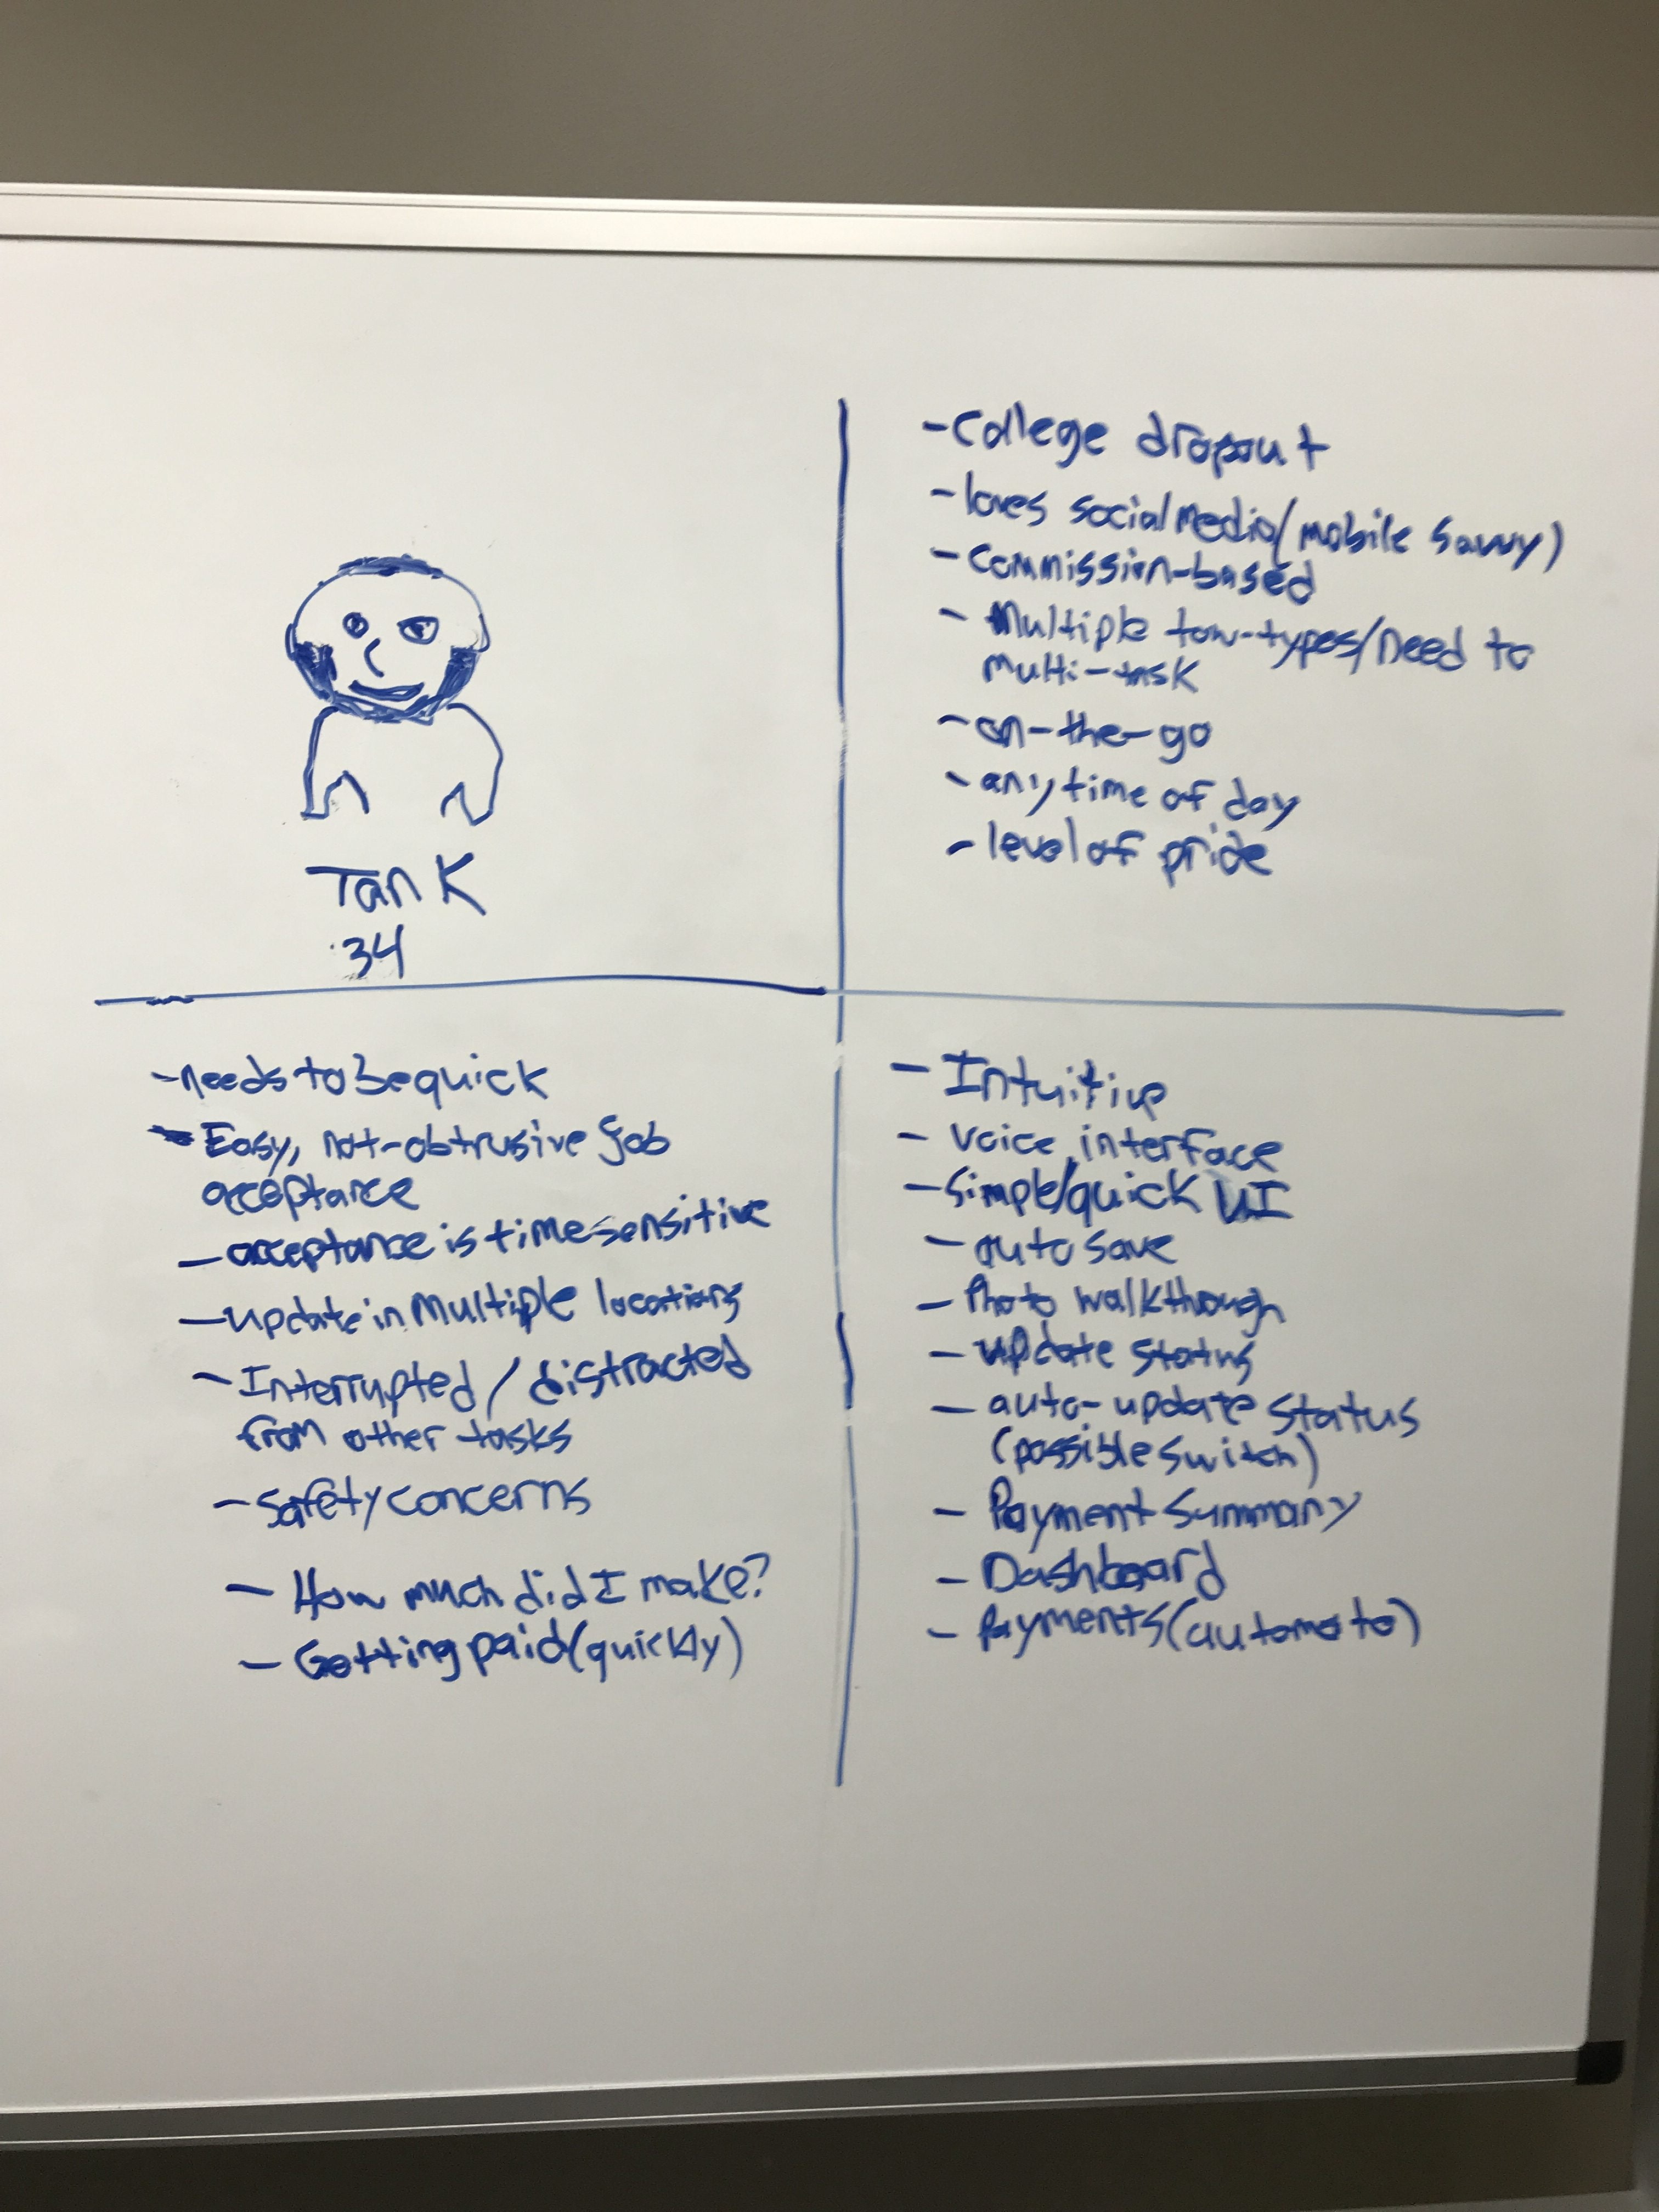 Tan K
34
- College dropout
- loves social media/(mobile savvy)
- Commission-based
- Multiple tow-types/need to
multi-task
- on-the-go
- any time of day
- level of pride
- needs to Be quick
- Easy, not-obtrusive job
acceptance
- acceptance is time sensitive
- update in multiple locations
- Interrupted / distracted
from other tasks
- Safety concerns
- How much did I make?
- Getting paid (quickly)
- Intuitive
- Voice interface
- Simple/quick UI
- auto save
- Photo walkthough
- update status
- auto-update status
(possible switch)
- Payment Summary
- Dashboard
- Payments (automato)